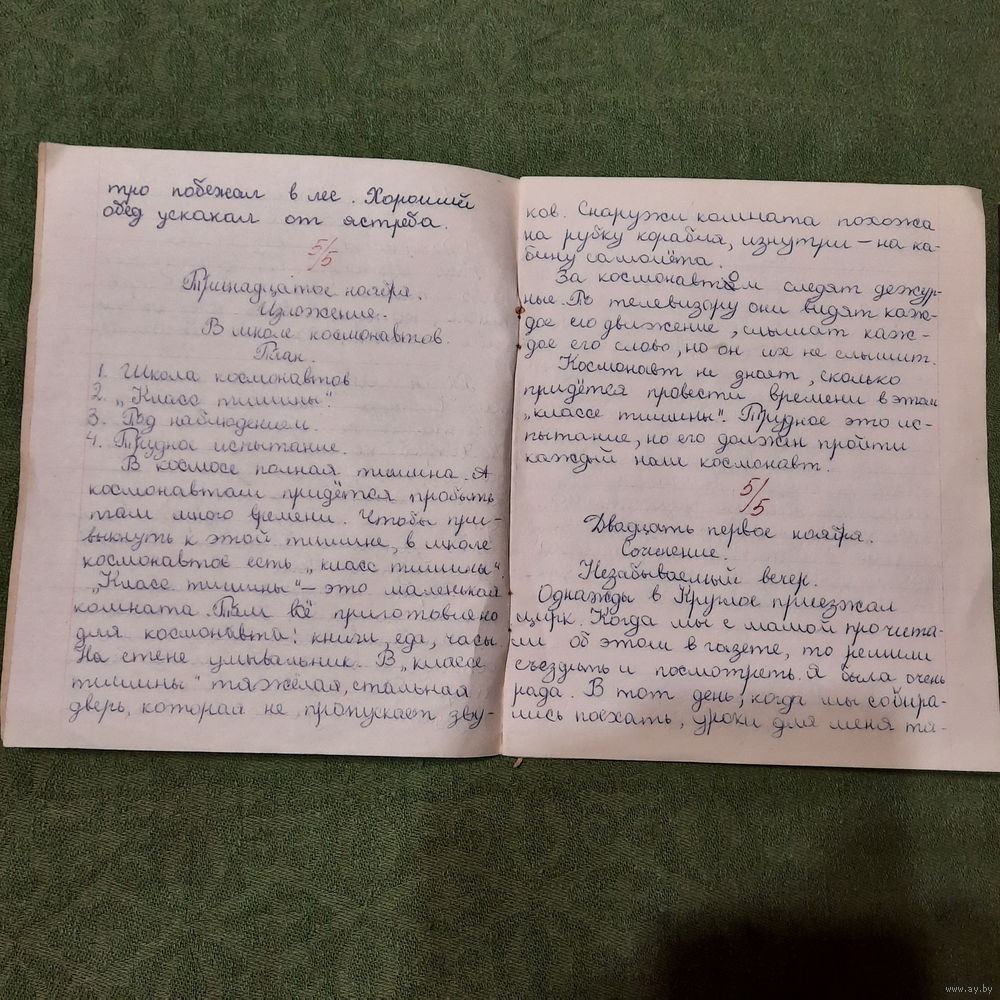 тро побежал в лес. Хороший
обед ускакал от ястреба.
5/5
Тринадцатое ноября.
Изложение.
В школе космонавтов.
План.
1. Школа космонавтов
2. „Класс тишины".
3. Под наблюдением.
4. Трудное испытание.
В космосе полная тишина. А
космонавтам придётся пробыть
там много времени. Чтобы при-
выкнуть к этой тишине, в школе
космонавтов есть „класс тишины".
„Класс тишины" – это маленькая
комната. Там всё приготовлено
для космонавта: книги, еда, часы.
На стене умывальник. В „классе
тишины" тяжёлая, стальная
дверь, которая не пропускает зву-
ков. Снаружи комната похожа
на рубку корабля, изнутри – на ка-
бину самолёта.
За космонавтом следят дежур-
ные. По телевизору они видят каж-
дое его движение, слышат каж-
дое его слово, но он их не слышит.
Космонавт не знает, сколько
придётся провести времени в этом
„классе тишины". Трудное это ис-
пытание, но его должен пройти
каждый наш космонавт.
5/5
Двадцать первое ноября.
Сочинение.
Незабываемый вечер.
Однажды в Круглое приезжал
цирк. Когда мы с мамой прочита-
ли об этом в газете, то решили
съездить и посмотреть. Я была очень
рада. В тот день, когда мы собира-
лись поехать, уроки для меня тя-
www.ay.by